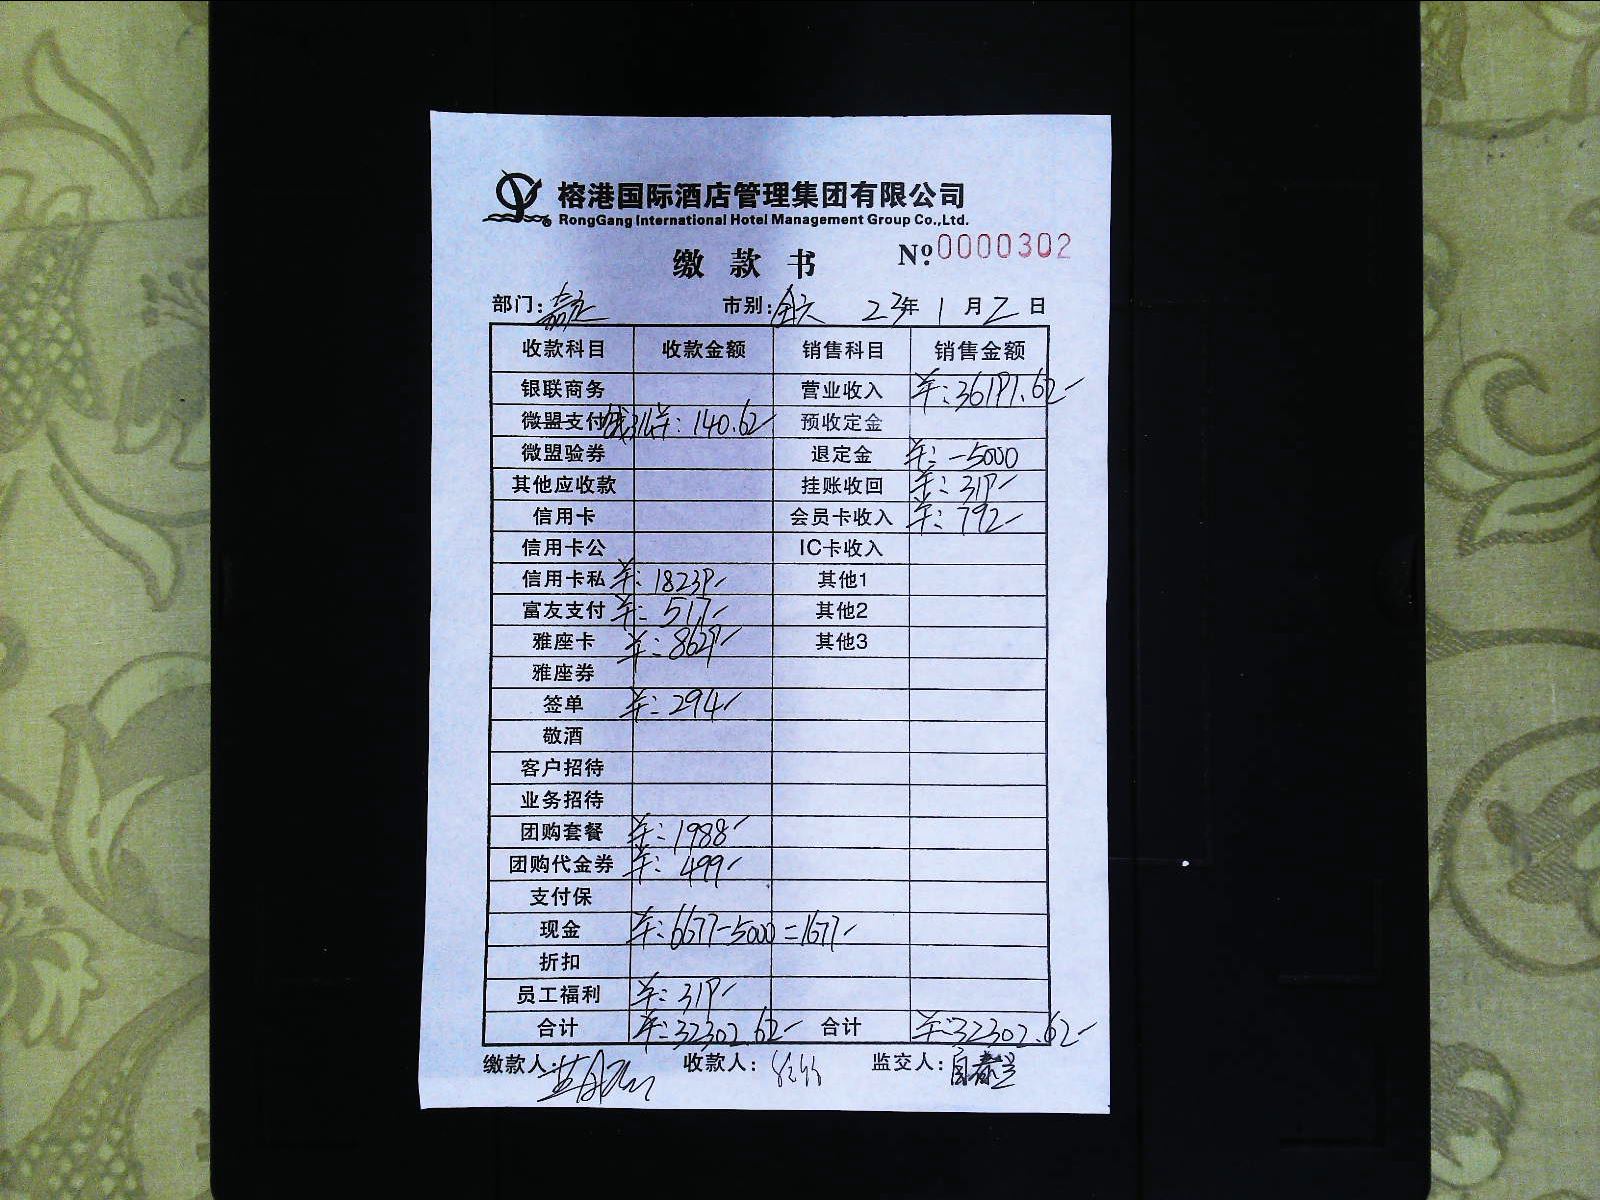 榕港国际酒店管理集团有限公司
RongGang International Hotel Management Group Co.,Ltd.
缴款书 №:0000302
部门: 市别:全天 23年1月2日
收款科目 收款金额 销售科目 销售金额
银联商务 营业收入 ¥:36191.62
微盟支付 ¥:140.62 预收定金
微盟验券 退定金 ¥:-5000
其他应收款 挂账收回 ¥:319
信用卡 会员卡收入 ¥:792
信用卡公 IC卡收入
信用卡私 ¥:18239 其他1
富友支付 ¥:517 其他2
雅座卡 ¥:8629 其他3
雅座券
签单 ¥:294
敬酒
客户招待
业务招待
团购套餐 ¥:1988
团购代金券 ¥:499
支付保
现金 ¥:6677-5000=1677
折扣
员工福利 ¥:319
合计 ¥:32302.62 合计 ¥:32302.62
缴款人: 收款人: 监交人: